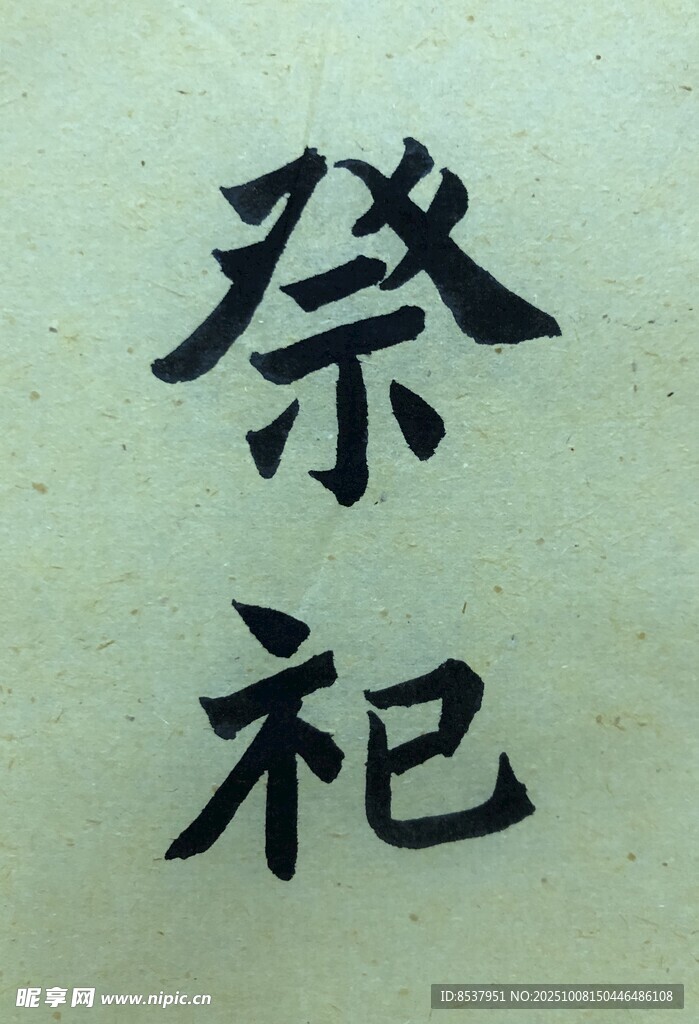 祭
祀
昵享网 www.nipic.cn
ID:8537951 NO:20251008150446486108